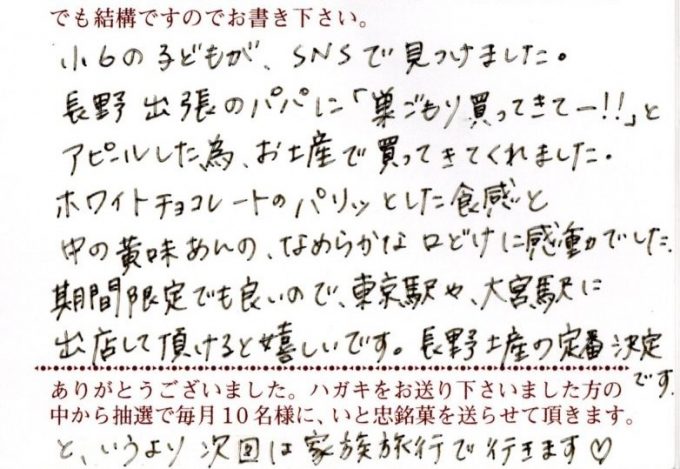 でも結構ですのでお書き下さい。
小6の子どもが、SNSで見つけました。
長野出張のパパに「巣ごもり買ってきてー!!」と
アピールした為、お土産で買ってきてくれました。
ホワイトチョコレートのパリッとした食感と
中の黄味あんの、なめらかな口どけに感動でした。
期間限定でも良いので、東京駅や、大宮駅に
出店して頂けると嬉しいです。長野土産の定番決定
です。
ありがとうございました。ハガキをお送り下さいました方の
中から抽選で毎月10名様に、いと忠銘菓を送らせて頂きます。
と、いうより次回は家族旅行で行きます♡